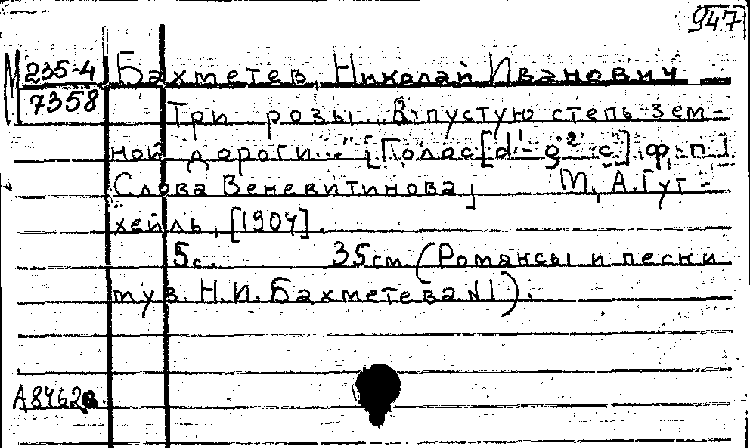 947
М 235-4
7358
Бахметев, Николай Иванович
Три розы. „В пустую степь зем-
ной дороги..." [Голос [d¹-g² с] ф.-п.]
Слова Веневитинова] М., А. Гут-
хейль, [1904].
5с. 35 см (Романсы и песни
муз. Н.И. Бахметева №1).
А8462